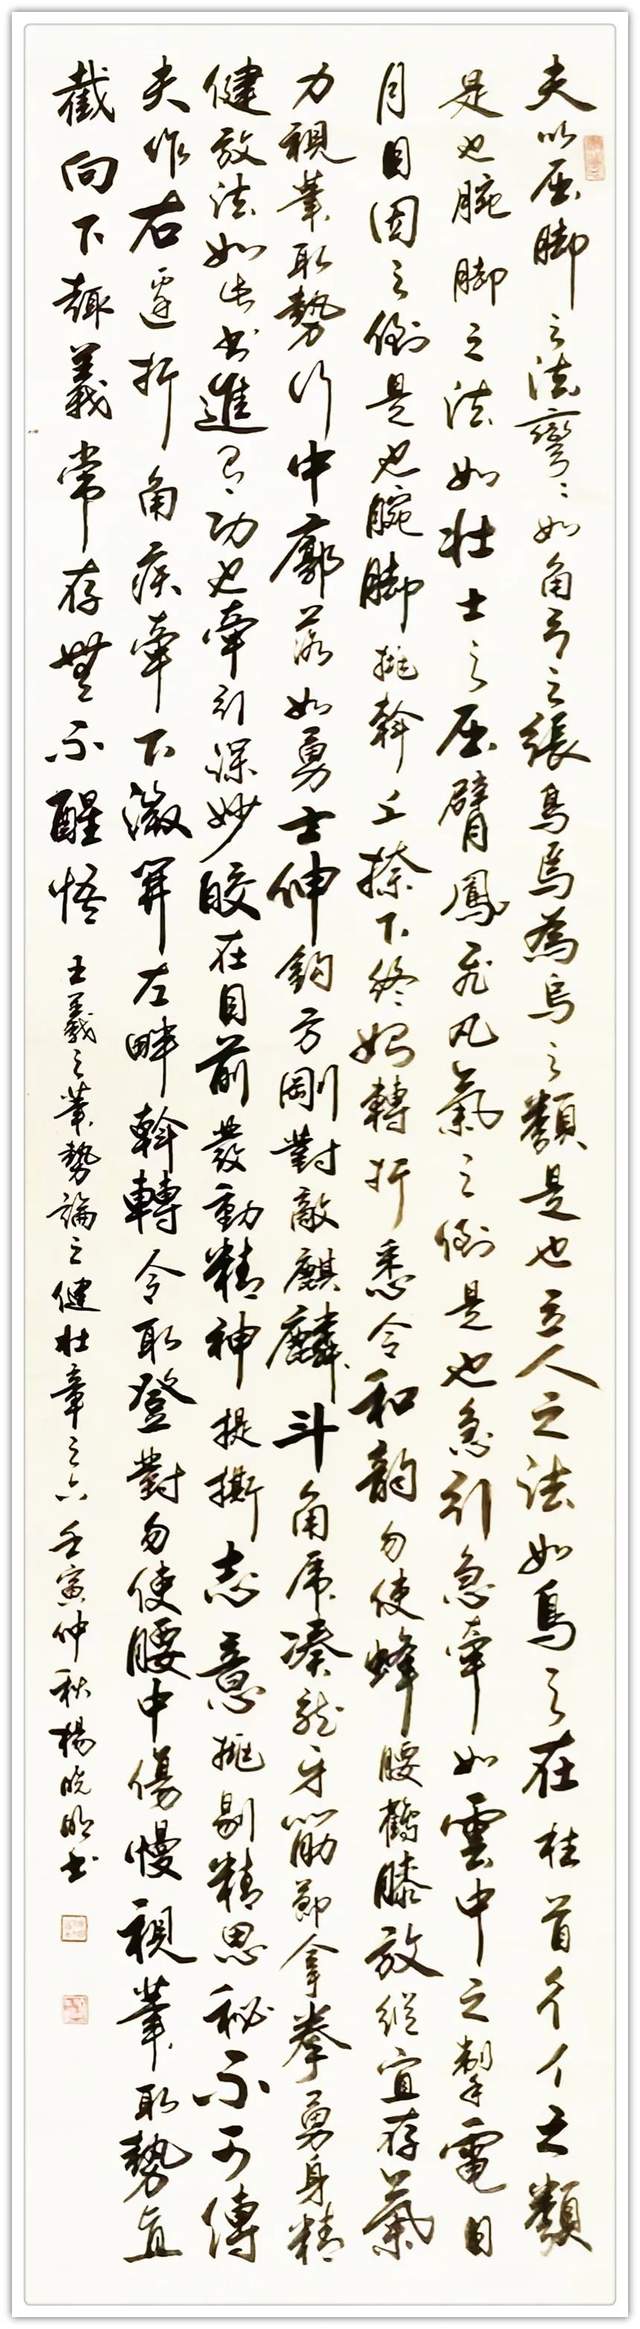 夫以屈脚之法彎彎如角弓之張鳥焉為烏之類是也立人之法如鳥之在柱首彳亻之類
是也腕脚之法如壯士之屈臂鳳飛凡氣之例是也急引急牽如雲中之掣電日
月目因之例是也腕脚挑斡上捺下終始轉折悉令和韵勿使蜂腰鶴膝放縱宜存氣
力視筆取勢行中廓落如勇士伸鈎方剛對敵麒麟斗角虎湊龍牙筋節拿拳勇身精
健放法如此書進有功也牽引深妙皎在目前發動精神提撕志意挑剔精思秘不可傳
夫作右邊折角疾牽下微開左畔斡轉令取登對勿使腰中傷慢視筆取勢直
截向下趣義常存無不醒悟 王羲之筆勢論之健壯章之六 壬寅仲秋楊曉明书